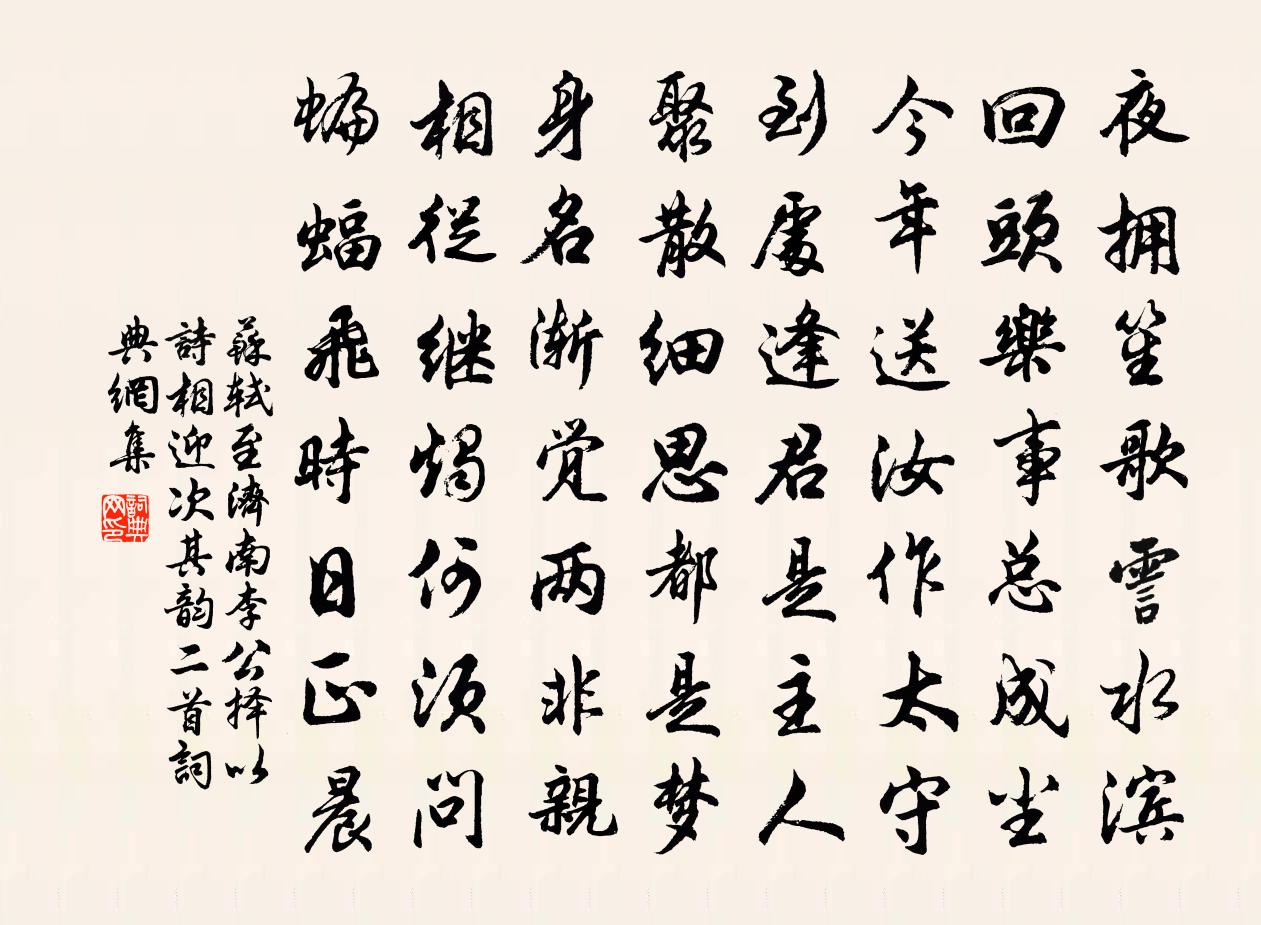 夜拥笙歌霅水滨
回頭樂事总成尘
今年送汝作太守
到處逢君是主人
聚散细思都是梦
身名渐觉两非親
相從继烛何须问
蝙蝠飛時日正晨
蘇轼至濟南李公择以
詩相迎次其韵二首詞
典網集
詞典網印